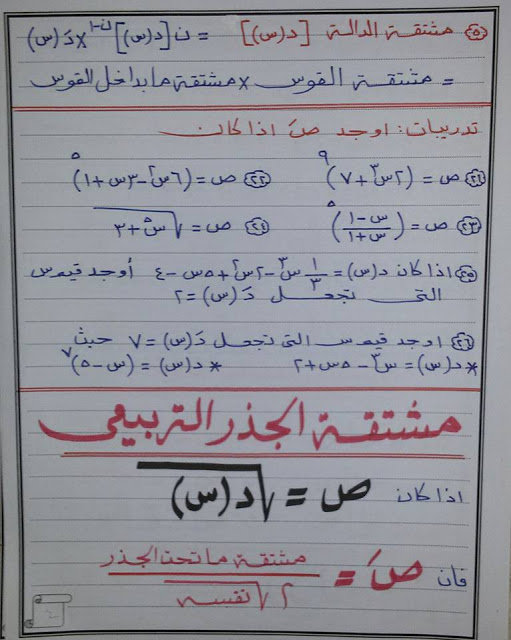 ٥ مشتقة الدالة [د(س)]ⁿ = ن[د(س)]ن-١ × دَ(س)
= مشتقة القوس × مشتقة ما بداخل القوس
تدريبات: اوجد صَ اذا كان
٢١ ص = (٢س٣ + ٧)٩ ٢٢ ص = (٦س٢ - ٣س + ١)٥
٢٣ ص = (س-١/س+١)٥ ٢٤ ص = √س٥ + ٣
٢٥ اذا كان د(س) = ١/٣ س٣ - ٢س٢ + ٥س - ٤ أوجد قيم س
التى تجعل دَ(س) = ٢
٢٦ اوجد قيم س التى تجعل دَ(س) = ٧ حيث
* د(س) = س٣ - ٥س + ٢ * د(س) = (س - ٥)٧
مشتقة الجذر التربيعى
اذا كان ص = √د(س)
فان صَ = مشتقة ما تحت الجذر / ٢√نفسه